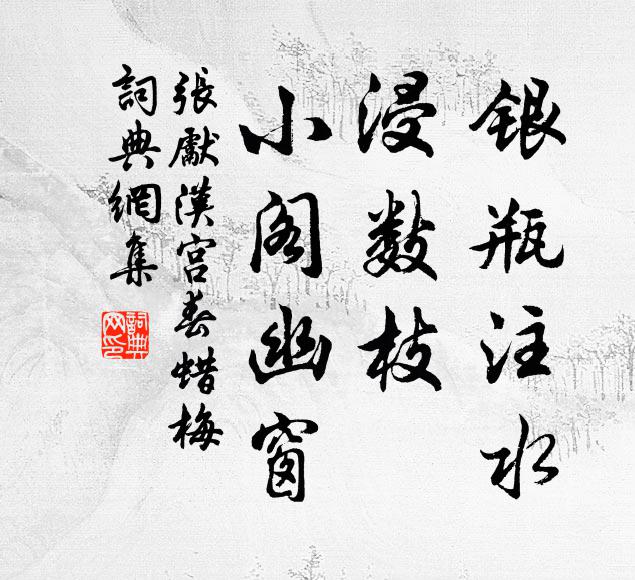 銀瓶注水
浸數枝
小阁幽窗
張獻漢宮春蜡梅
詞典網集
詞典
网印